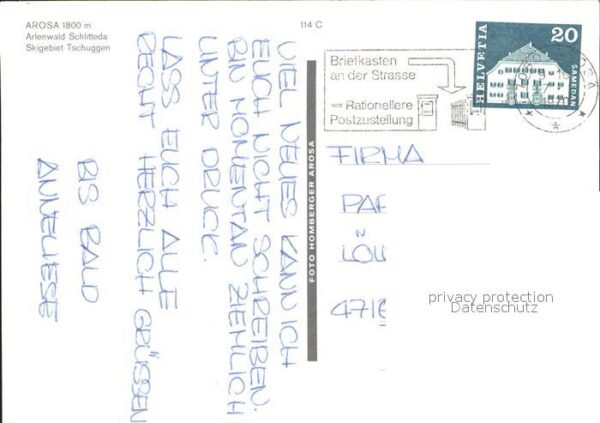 AROSA 1800 m
Arlenwald Schlitteda
Skigebiet Tschuggen
114 C
VIEL NEUES KANN ICH
EUCH NICHT SCHREIBEN.
BIN MOMENTAN ZIEMLICH
UNTER DRUCK.
LASS EUCH ALLE
RECHT HERZLICH GRÜSSEN
BIS BALD
ANNELIESE
FOTO HOMBERGER AROSA
Briefkasten
an der Strasse
= Rationellere
Postzustellung
HELVETIA
20
SAMEDAN
AROSA
FIRMA
privacy protection
Datenschutz